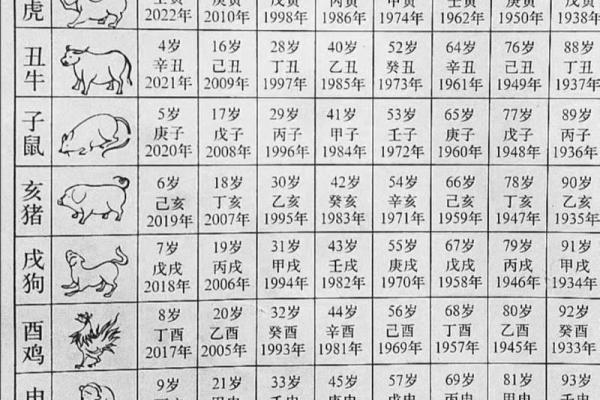 虎
2022年 2010年 1998年 1986年 1974年 1962年 1950年 1938年
丑牛
4岁 16岁 28岁 40岁 52岁 64岁 76岁 88岁
辛丑 己丑 丁丑 乙丑 癸丑 辛丑 己丑 丁丑
2021年 2009年 1997年 1985年 1973年 1961年 1949年 1937年
子鼠
5岁 17岁 29岁 41岁 53岁 65岁 77岁 89岁
庚子 戊子 丙子 甲子 壬子 庚子 戊子 丙子
2020年 2008年 1996年 1984年 1972年 1960年 1948年 1936年
亥猪
6岁 18岁 30岁 42岁 54岁 66岁 78岁 90岁
己亥 丁亥 乙亥 癸亥 辛亥 己亥 丁亥 乙亥
2019年 2007年 1995年 1983年 1971年 1959年 1947年 1935年
戌狗
7岁 19岁 31岁 43岁 55岁 67岁 79岁 91岁
戊戌 丙戌 甲戌 壬戌 庚戌 戊戌 丙戌 甲戌
2018年 2006年 1994年 1982年 1970年 1958年 1946年 1934年
酉鸡
8岁 20岁 32岁 44岁 56岁 68岁 80岁 92岁
丁酉 乙酉 癸酉 辛酉 己酉 丁酉 乙酉 癸酉
2017年 2005年 1993年 1981年 1969年 1957年 1945年 1933年
申
9岁 21岁 33岁 45岁 57岁 69岁 81岁 93岁